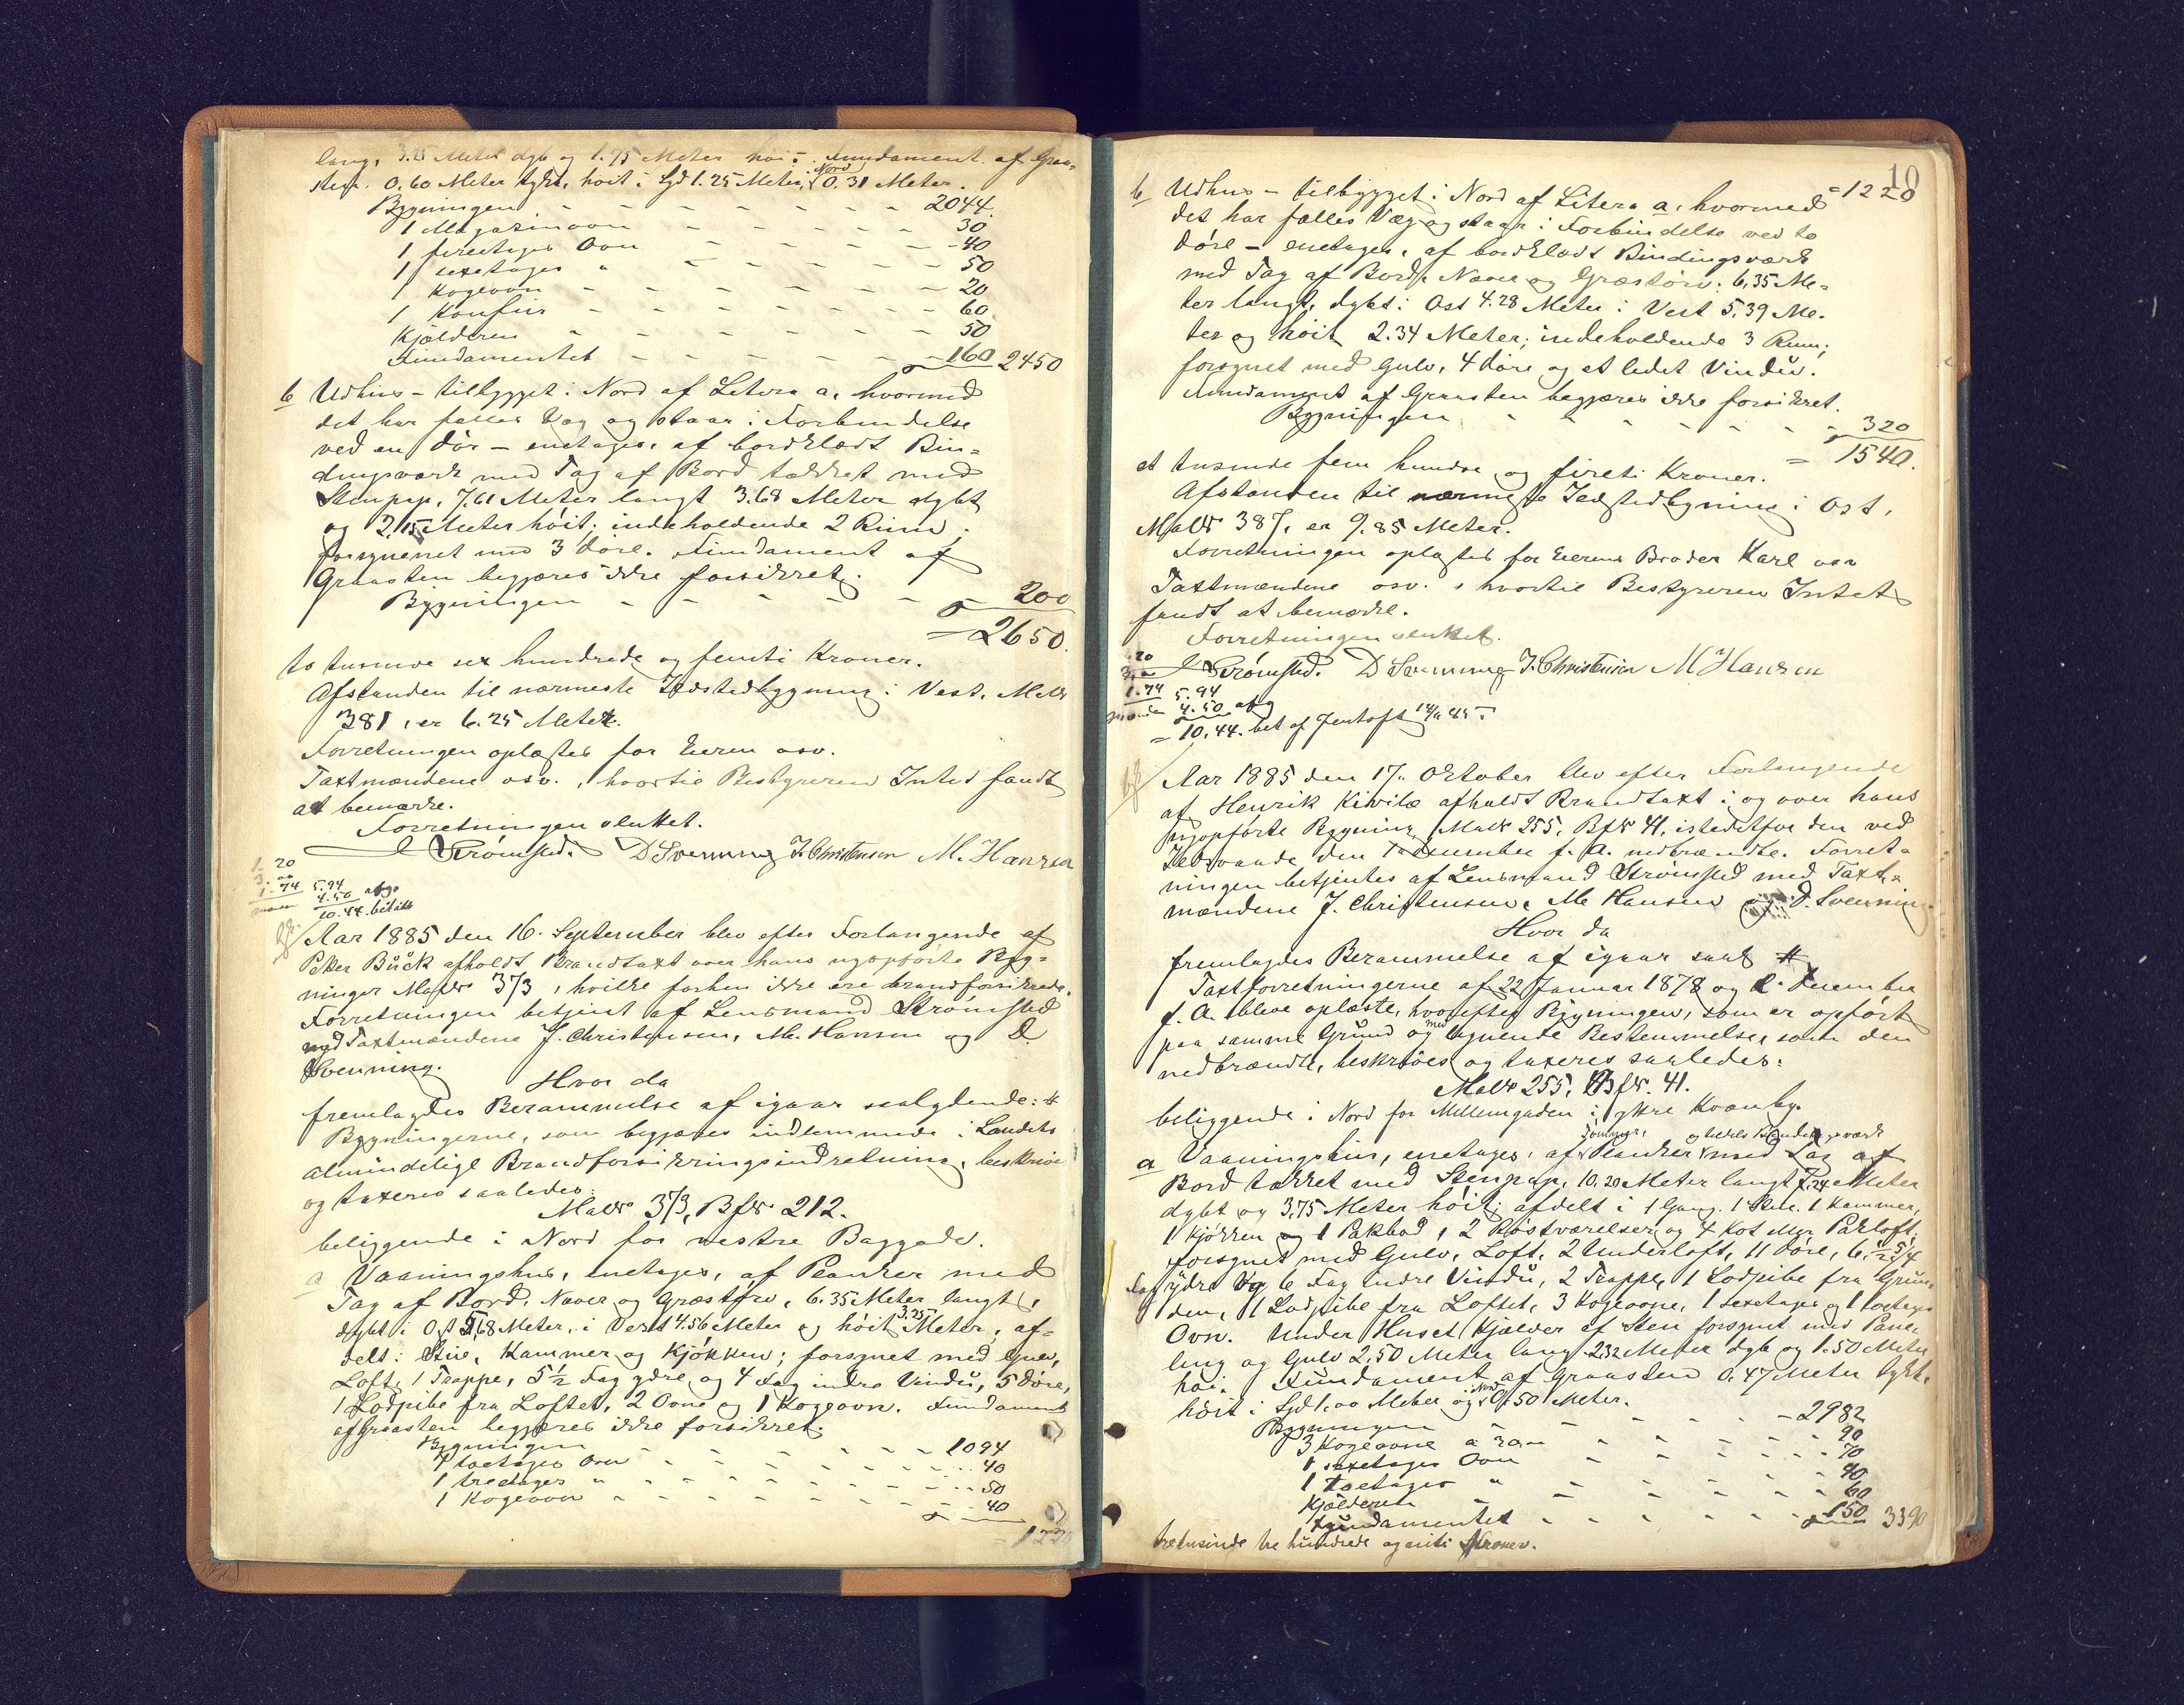 lang, 3.25 Meter dybt og 1.75 Meter høi. Fundament af Graa-
sten. 0.60 Meter tykt, høit i Syd 1.25 Meter, i Nord 0.31 Meter.
Bygningen - - - - - - 2044.
1 Magasinovn - - - - - 30
1 firetages Ovn - - - - - 40
1 sexetages " - - - - - 50
1 Kogeovn - - - - - 20
1 Komfur - - - - - 60
Kjælderen - - - - - 50
Fundamentet - - - - - 160 2450
b Udhus - tilbygget i Nord af Litera a, hvormed
det har fælles Væg og staar i Forbindelse
ved en Dør - enetages, af bordklædt Bin-
dingsværk med Tag af Bord tækket med
Stenpap, 7.61 Meter langt 3.68 Meter dybt
og 2.15 Meter høit; indeholdende 2 Rum;
forsynet med 3 Døre. Fundament af
Graasten begjæres ikke forsikret.
Bygningen - - - - - 200
= 2650.
to tusinde sex hundrede og femti Kroner.
Afstanden til nærmeste Ildstedbygning i Vest, MatN
381, er 6.25 Meter.
Forretningen oplæstes for Eieren osv.
Taxtmændene osv., hvortil Bestyreren Intet fandt
at bemærke.
Forretningen sluttet.
Strømsted. D Svenning J. Christensen M. Hansen
1. 20
3. 00
1. 74 5.94
4.50 afg
10.44. betalt
Aar 1885 den 16. September blev efter Forlangende af
Peter Bück afholdt Brandtaxt over hans nyopførte Byg-
ninger MatN 373, hvilke forhen ikke ere brandforsikrede.
Forretningen betjent af Lensmand Strømsted
med Taxtmændene J. Christensen, M. Hansen og D.
Svenning.
Hvor da
fremlagdes Berammelse af igaar saalydende: #
Bygningerne, som begjæres indlemmede i Landets
almindelige Brandforsikringsindretning, beskrives
og taxeres saaledes:
MatN 373, BfN 212.
beliggende i Nord for vestre Baggade.
a Vaaningshus, enetages, af Planker med
Tag af Bord, Næver og Græstørv, 6.35 Meter langt,
dybt i Ost 5.68 Meter, i Vest 4.56 Meter og høit 3.25 Meter, af-
delt i Stue, Kammer og Kjøkken; forsynet med Gulv,
Loft, 1 Trappe, 5½ Fag ydre og 4 Fag indre Vindu, 5 Døre,
1 Lodpibe fra Loftet, 2 Ovne og 1 Kogeovn. Fundament
af Graasten begjæres ikke forsikret.
Bygningen - - - - - 1094
1 toetages Ovn - - - - - 40
1 tretages " - - - - - 50
1 Kogeovn - - - - - 40
= 1220
10
b Udhus - tilbygget i Nord af Litera a, hvormed = 1220
det har fælles Væg og staar i Forbindelse ved to
Døre - enetages, af bordklædt Bindingsværk
med Tag af Bord, Næver og Græstørv; 6,35 Me-
ter langt, dybt i Ost 4.28 Meter i Vest 5.39 Me-
ter og høit 2.34 Meter; indeholdende 3 Rum;
forsynet med Gulv, 4 Døre og et ledet Vindu.
Fundament af Graasten begjæres ikke forsikret.
Bygningen - - - - - 320
= 1540.
et tusinde fem hundre og fireti Kroner.
Afstanden til nærmeste Ildstedbygning i Ost,
MatN 387, er 9.85 Meter.
Forretningen oplæstes for Eierens Broder Karl osv
Taxtmændene osv., hvortil Bestyreren Intet
fandt at bemærke.
Forretningen sluttet.
Strømsted. D Svenning J. Christensen M Hansen
1.74 5.94
4.50 afg
= 10.44. bet af Jentoft
Aar 1885 den 17. Oktober blev efter Forlangende
af Henrik Kivilæ afholdt Brandtaxt i og over hans
nyopførte Bygning MatN 255, BfN 41, istedetfor den ved
Ildsvaade den December f. A. nedbrændte. Forret-
ningen betjentes af Lensmand Strømsted med Taxt-
mændene J. Christensen, M Hansen og D. Svenning.
Hvor da
fremlagdes Berammelse af igaar saal #
Taxtforretningerne af 22 Januar 1878 og 2. December
f. A. bleve oplæste, hvorefter Bygningen, som er opført
paa samme Grund og med lignende Bestemmelse, som den
nedbrændte, beskrives og taxeres saaledes:
MatN 255, BfN. 41.
beliggende i Nord for Mellemgaden i ytre Kvænby.
a Vaaningshus, enetages, af Tømmer, Planker og tildels Bindingsværk med Tag af
Bord tækket med Stenpap, 10.20 Meter langt 7.24 Meter
dybt og 3,75 Meter høit; afdelt i 1 Gang, 1 Stue, 1 Kammer,
1 Kjøkken og 1 Pakbod, 2 Røstværelser og 4 Kot samt Pakloft;
forsynet med Gulv, Loft, 2 Underloft, 11 Døre, 6,
Fag ydre og 6 Fag indre Vindu, 2 Trapper, 1 Lodpibe fra Grun-
den, 1 Lodpibe fra Loftet, 3 Kogeovne, 1 sexetages og 1 toetages
Ovn. Under Huset Kjælder af Sten forsynet med Pane-
ling og Gulv 2,50 Meter lang 2.32 Meter dyb og 1.50 Meter
høi. Fundament af Graasten 0.47 Meter tykt,
høit i Syd 1.00 Meter og i Nord 0.50 Meter.
Bygningen - - - - - 2982
3 Kogeovne a 30 - - - - - 90
1 sexetages Ovn - - - - - 70
1 toetages " - - - - - 40
Kjælderen - - - - - 60
Fundamentet - - - - - 150 3390
tretusinde tre hundrede og niti Kroner.